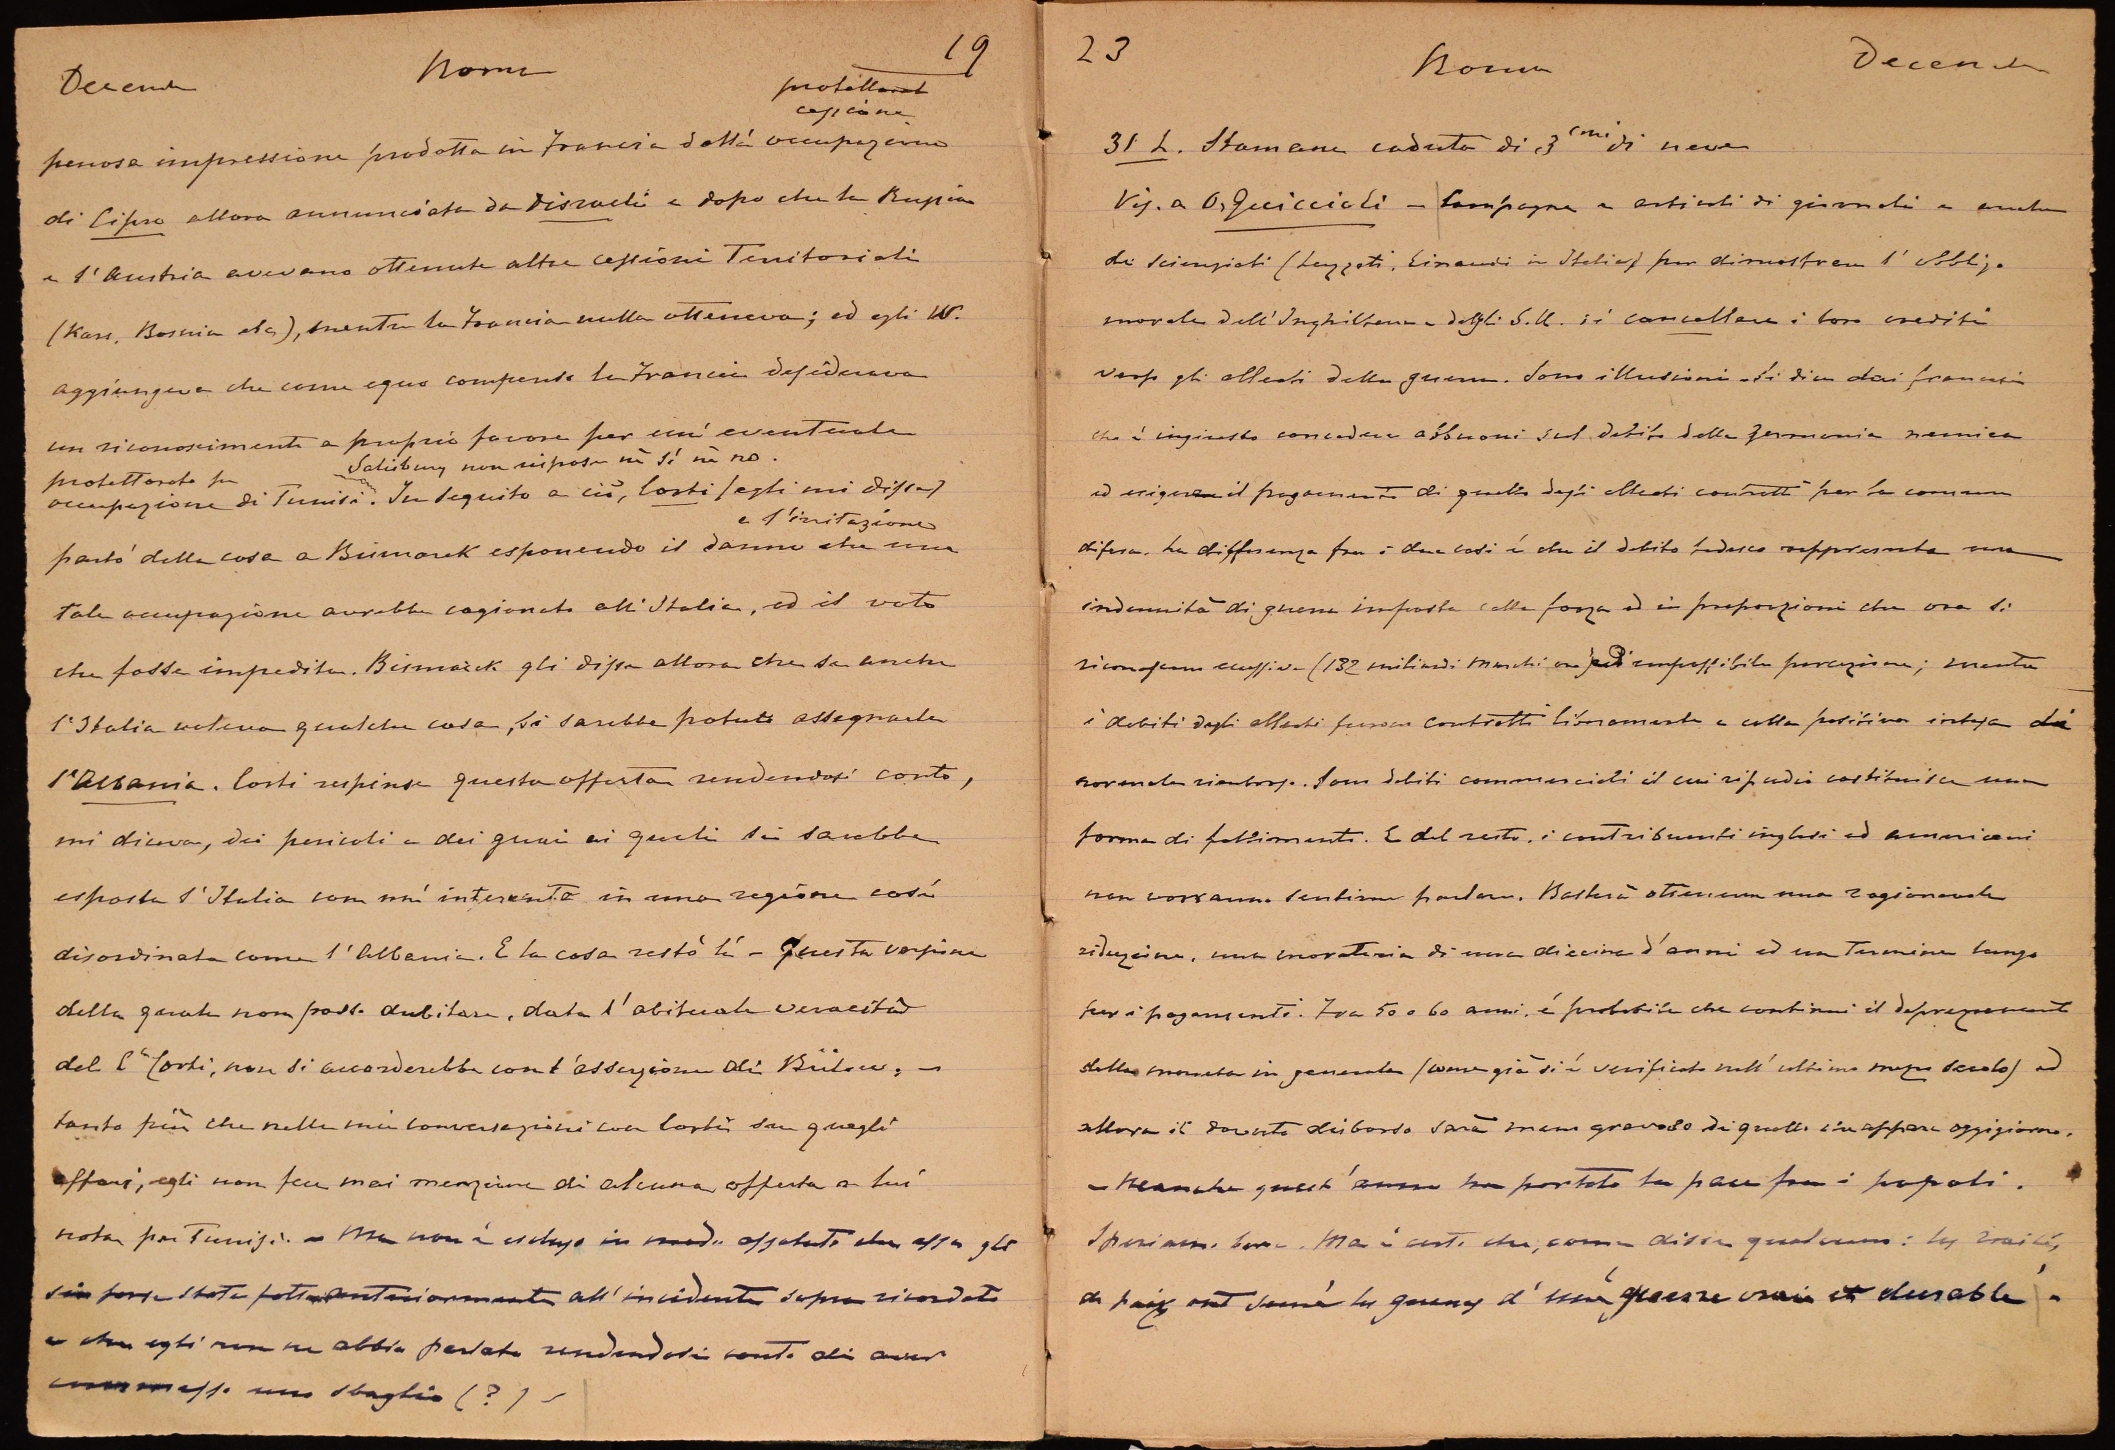 Decembre
Roma
19
protettorat
cessione
penosa impressione prodotta in Francia dalla occupazione
di Cipro allora annunciata da Disraeli e dopo che la Russia
e l'Austria avevano ottenute altre cessioni Territoriali
(Kars, Bosnia etc), mentre la Francia nulla otteneva; ed egli W.
aggiungeva che come equo compenso la Francia desiderava
un riconoscimento a proprio favore per un'eventuale
Salisbury non rispose nè sì nè no.
protettorato su
occupazione di Tunisi. In seguito a ciò, Corti (egli mi disse)
e l'irritazione
parlò della cosa a Bismarck esponendo il danno che una
tale occupazione avrebbe cagionato all'Italia, ed il voto
che fosse impedita. Bismarck gli disse allora che se anche
l'Italia voleva qualche cosa, si sarebbe potuto assegnarle
l'Albania. Corti respinse questa offerta rendendosi conto,
mi diceva, dei pericoli e dei guai ai quali si sarebbe
esposta l'Italia con un'intervento in una regione così
disordinata come l'Albania. E la cosa restò lì - Questa versione
della quale non posso dubitare, data l'abituale veracità
del Cte Corti, non si accorderebbe con l'asserzione di Bülow; -
tanto più che nelle mie conversazioni con Corti su quegli
affari, egli non fece mai menzione di alcuna offerta a lui
nota per Tunisi. - Ma non è escluso in modo assoluto che essa gli
sia forse stata fatta anteriormente all'incidente sopra ricordato
e che egli non ne abbia parlato rendendosi conto di aver
commesso uno sbaglio (?) -
23
Roma
Decembre
31 L. Stamane caduta di 3 cmi di neve
Vis. a O. Guiccioli - Campagna e articoli di giornali e anche
di scienziati (Luzzatti, Einaudi in Italia) per dimostrare l'obbligo
morale dell'Inghilterra e degli S.U. di cancellare i loro crediti
verso gli alleati della guerra. Sono illusioni. Si dice dai francesi
che è ingiusto concedere abbuoni sul debito della Germania nemica
ed esigere il pagamento di quello degli alleati contratti per la comune
difesa. La differenza fra i due casi è che il debito tedesco rappresenta una
indennità di guerra imposta colla forza ed in proporzioni che ora si
riconoscono eccessive (132 miliardi marchi oro) ed impossibile percezione; mentre
i debiti degli alleati furono contratti liberamente e colla positiva intesa di
normale rimborso. Sono debiti commerciali il cui ripudio costituisce una
forma di fallimento. E del resto, i contribuenti inglesi ed americani
non vorranno sentirne parlare. Basterà ottenere una ragionevole
riduzione, una moratoria di una diecina d'anni ed un Termine lungo
per i pagamenti. Fra 50 o 60 anni, è probabile che continui il deprezzamento
della moneta in generale (come già si è verificato nell'ultimo mezzo secolo) ed
allora il dovuto disborso sarà meno gravoso di quello che appare oggigiorno.
- Neanche quest'anno ha portato la pace fra i popoli.
Speriamo bene. Ma è certo che, come disse qualcuno: les traités
de paix ont semé les germes d'une guerre vraie et durable -